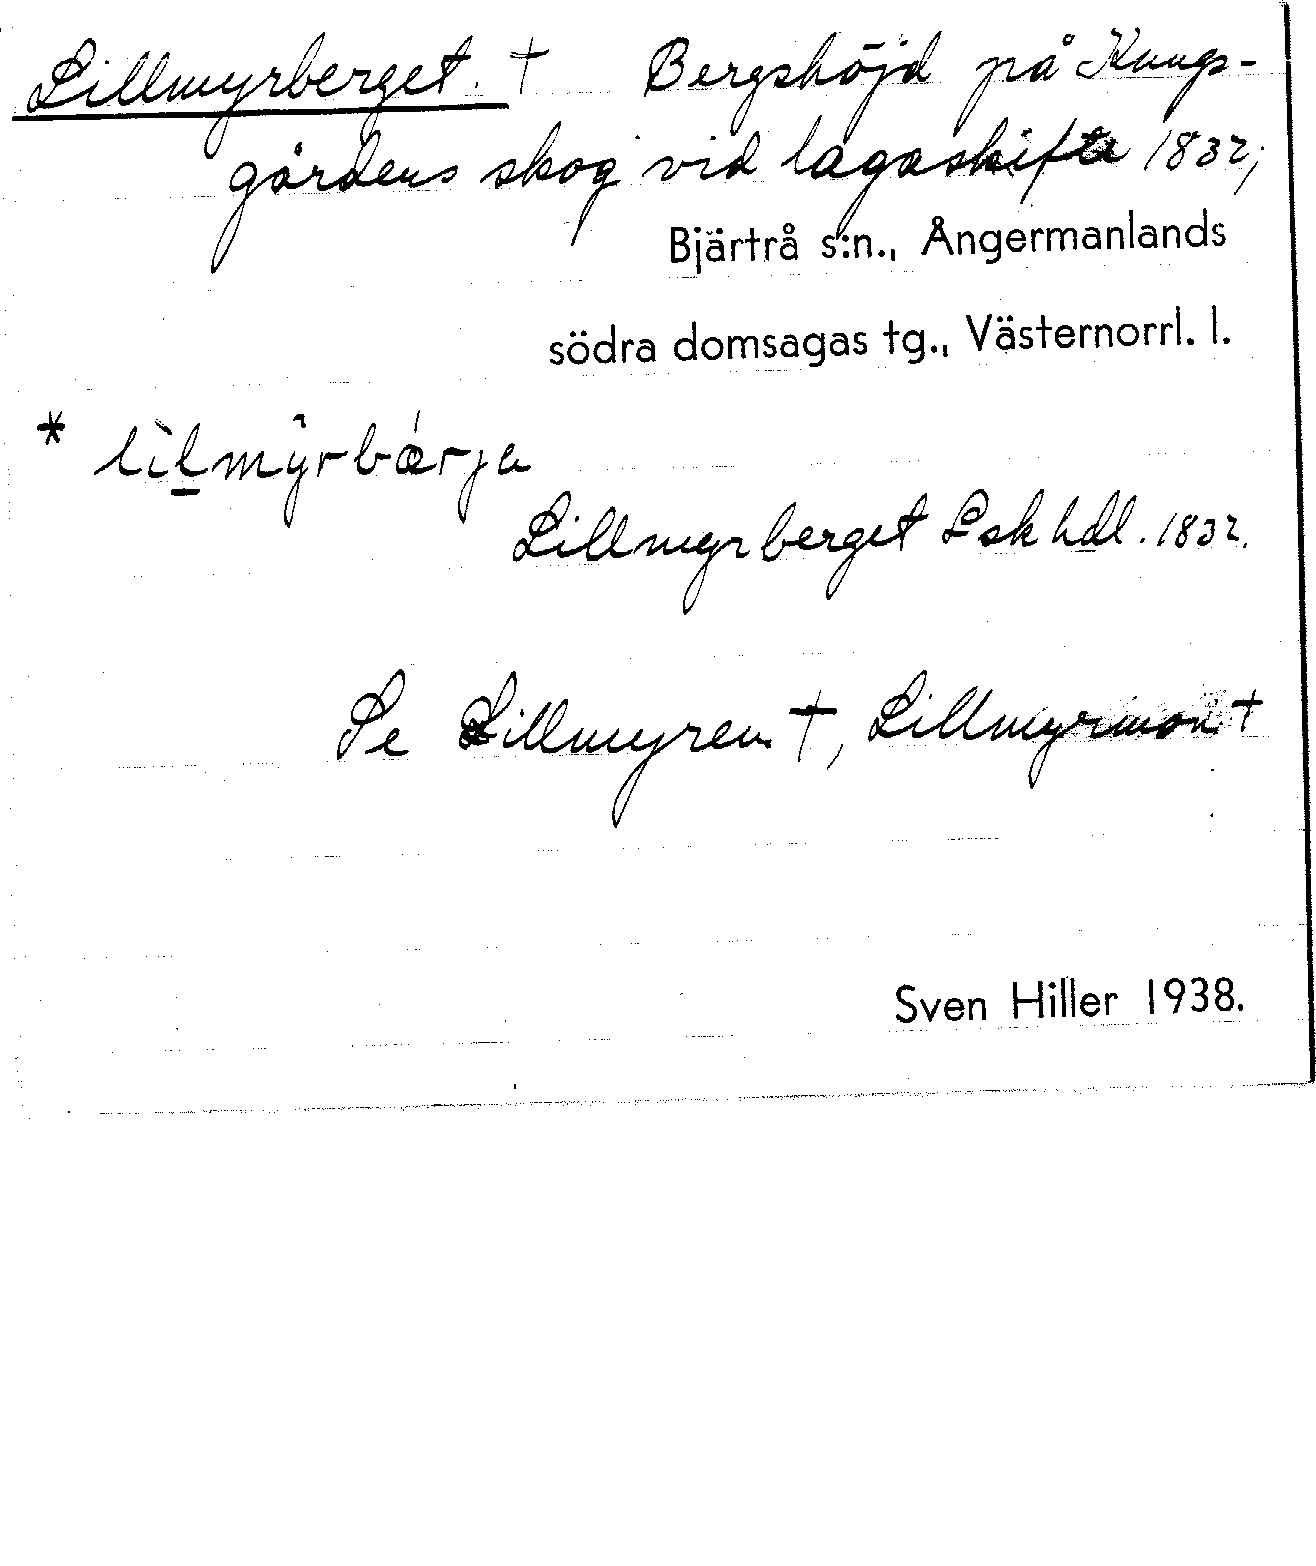 Lillmyrberget. † Bergshöjd på Kungs-
gårdens skog vid lagaskifte 1832;
Bjärtrå s:n., Ångermanlands
södra domsagas tg., Västernorrl. l.
* lìḻmŷrbǽrja
Lillmyrberget Lskhdl. 1832.
Se Lillmyren †, Lillmyrmon †
Sven Hiller 1938.